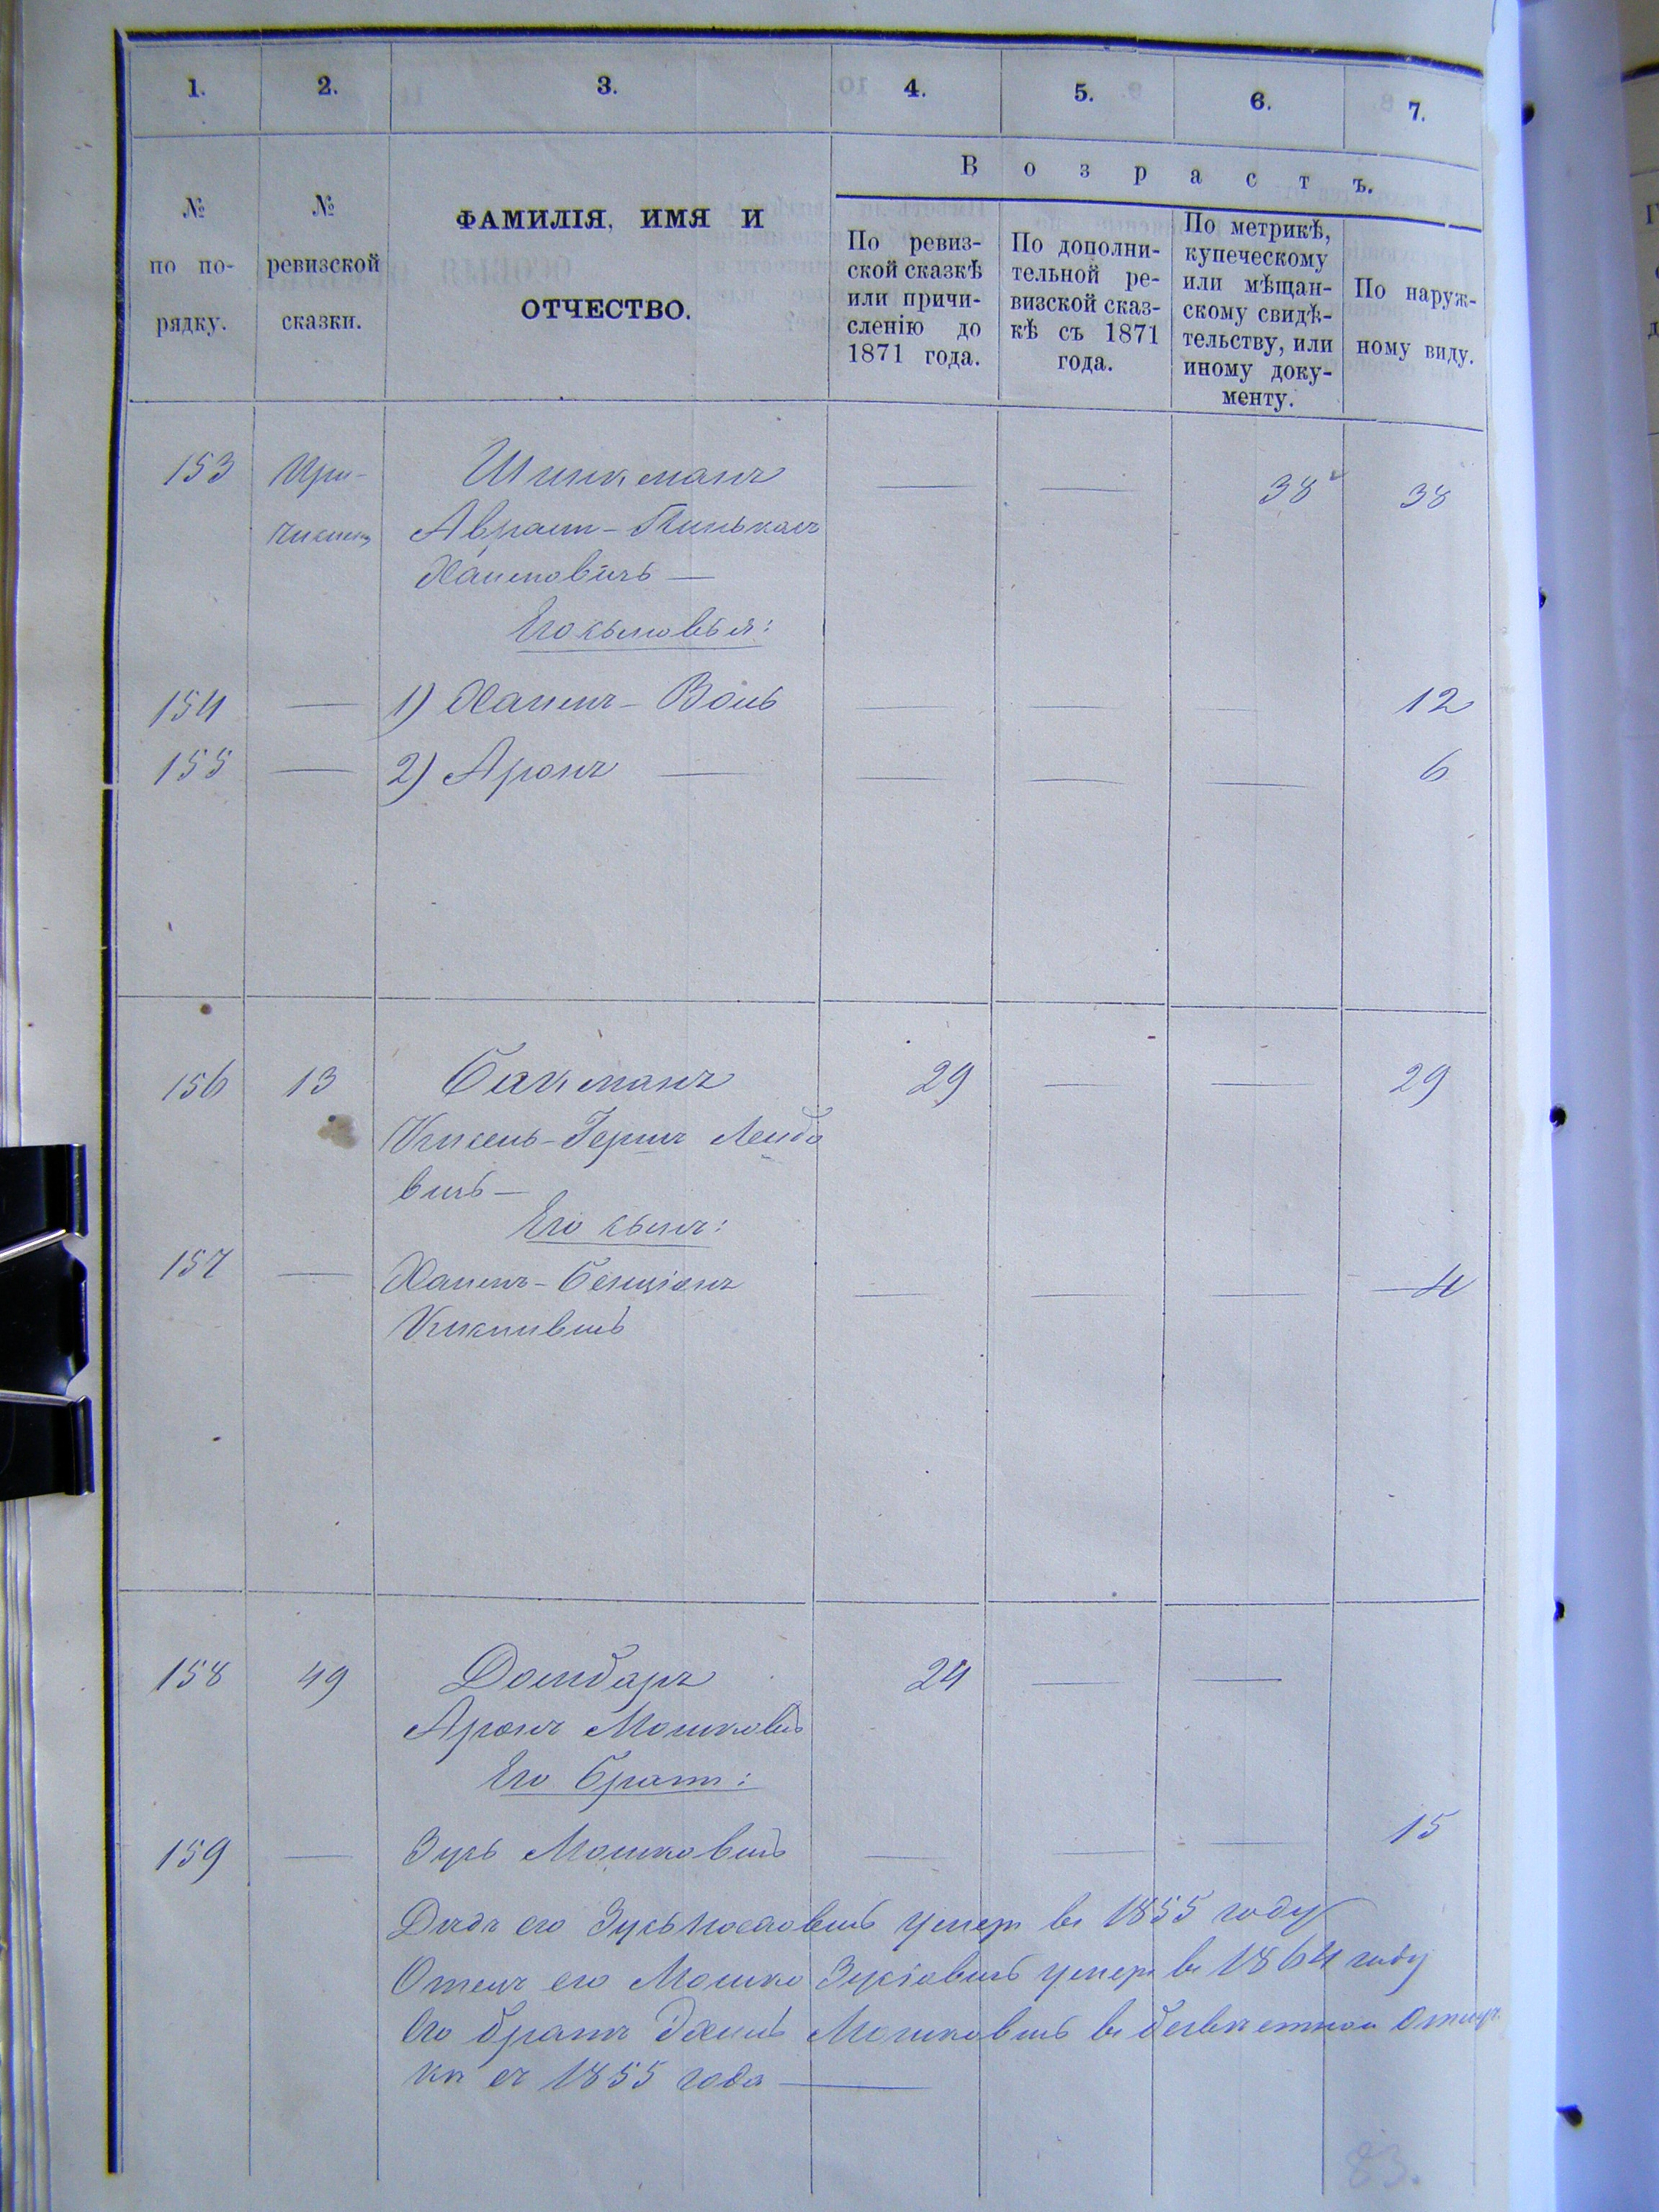 1. 2. 3. 4. 5. 6. 7.
В о з р а с т ъ.
№ по по-рядку.
№ ревизской сказки.
ФАМИЛІЯ, ИМЯ И
ОТЧЕСТВО.
По ревиз-
ской сказкѣ
или причи-
сленію до
1871 года.
По дополни-
тельной ре-
визской сказ-
кѣ съ 1871
года.
По метрикѣ,
купеческому
или мѣщан-
скому свидѣ-
тельству, или
иному доку-
менту.
По наруж-
ному виду.
153 При- Шинкманъ — — 38 38
Аврам-Пинькасъ
Хаимовичъ —
Его сыновья:
154 — 1) Хаимъ- — — — 12
155 — 2) Аронъ — — — — 6
156 13 Бакманъ 29 — — 29
Кисель-Гершъ Лейбо
вичъ —
Его сынъ:
157 — Хаимъ-Бенціонъ — — — 4
158 49 24 — —
Аронъ Мошковъ
Его братъ:
159 — Зусь Мошковичъ — — — 15
Дѣдъ его Зусь умеръ въ 1855 году
Отецъ его Мошко Зусіовичъ умеръ въ 1864 году
Его братъ Мошковичъ въ безвѣстной отлуч-
кѣ съ 1855 года —
83.